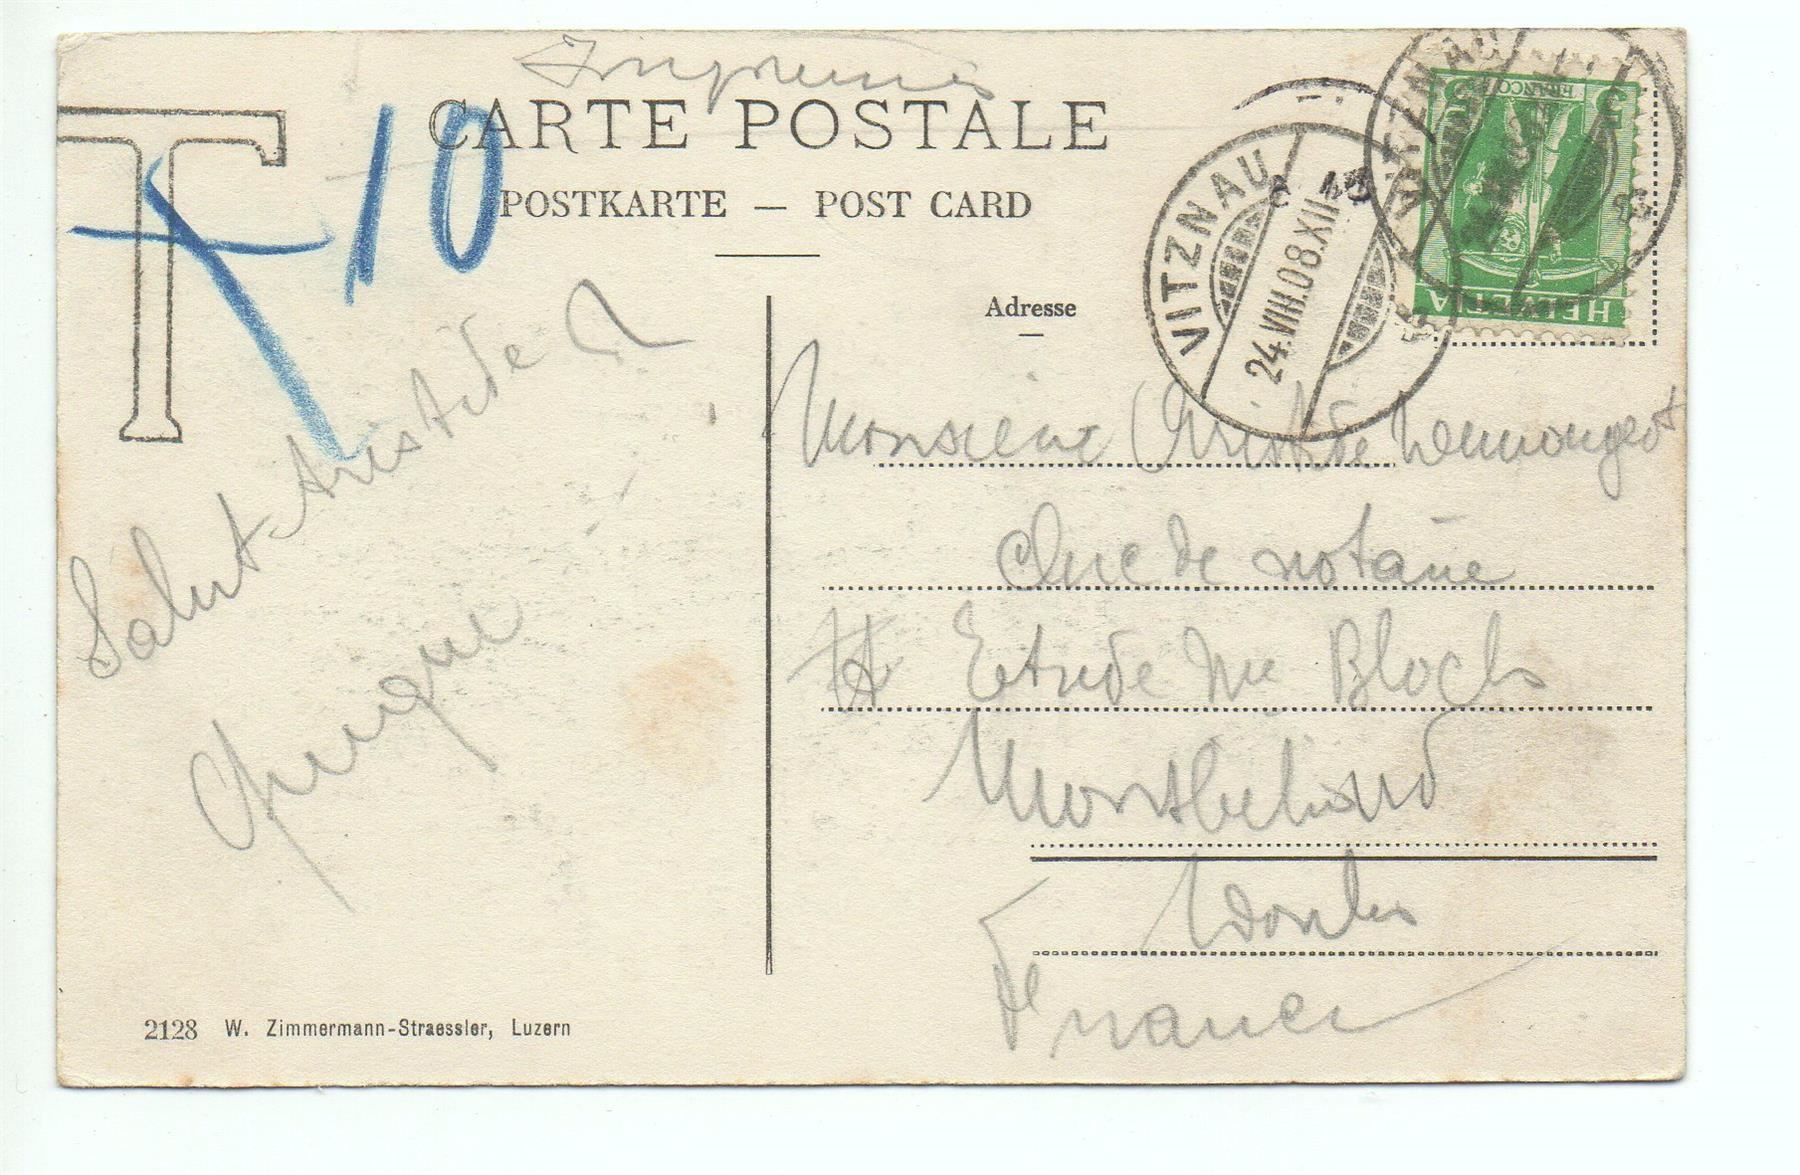 Imprimés
CARTE POSTALE
POSTKARTE — POST CARD
T
10
Adresse
VITZNAU
24.VIII.08.XII
VITZNAU
FRANCO
5 5
HELVETIA
Salut Aristide
Monsieur Aristide Demougeot
Clerc de notaire
Etude Me Bloch
Montbéliard
Doubs
France
2128 W. Zimmermann-Straessler, Luzern